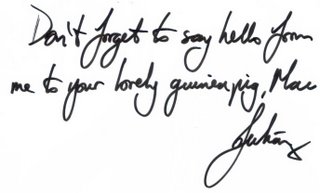 Don't forget to say hello from
me to your lovely guinea pig, Mac